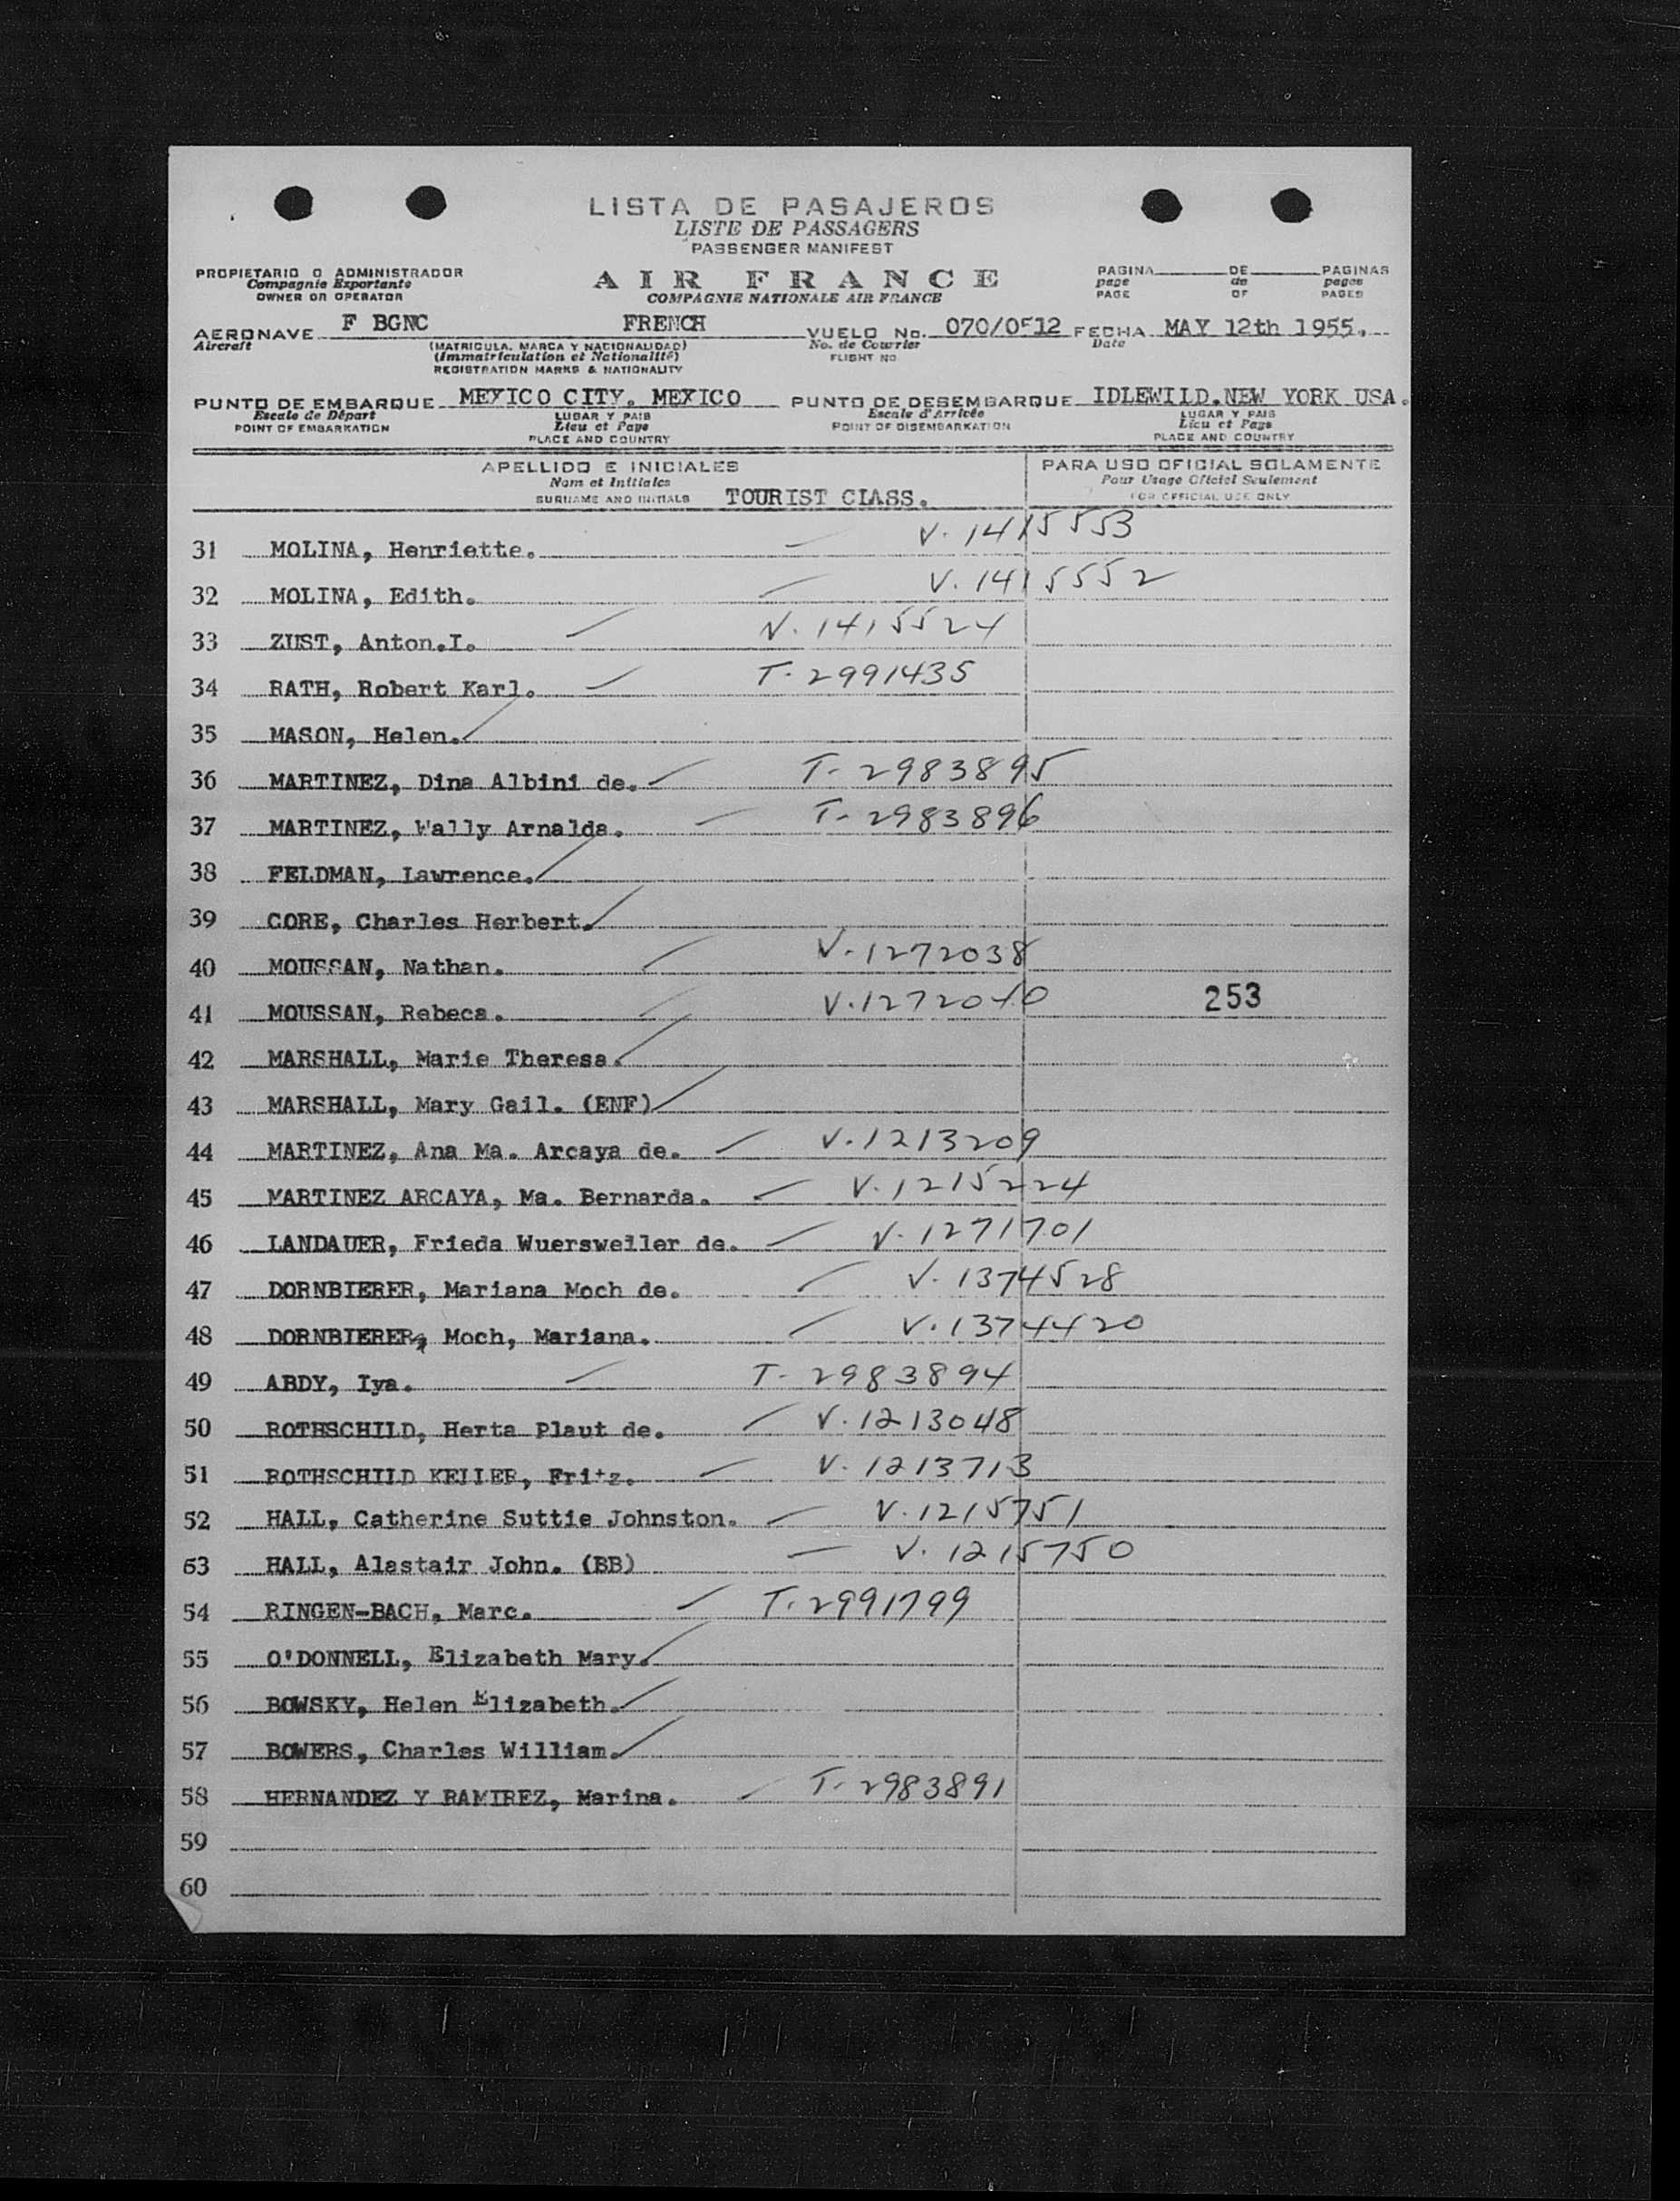 LISTA DE PASAJEROS
LISTE DE PASSAGERS
PASSENGER MANIFEST
PROPIETARIO O ADMINISTRADOR
Compagnie Exportante
OWNER OR OPERATOR
AIR FRANCE
COMPAGNIE NATIONALE AIR FRANCE
PAGINA DE PAGINAS
page de pages
PAGE OF PAGES
AERONAVE F BGNC FRENCH VUELO No. 070/0512 FECHA MAY 12th 1955.
Aircraft (MATRICULA, MARCA Y NACIONALIDAD) No. de Courrier Date
(Immatriculation et Nationalité) FLIGHT NO
REGISTRATION MARKS & NATIONALITY
PUNTO DE EMBARQUE MEXICO CITY. MEXICO PUNTO DE DESEMBARQUE IDLEWILD.NEW YORK USA.
Escale de Départ LUGAR Y PAIS Escale d'Arrivée LUGAR Y PAIS
POINT OF EMBARKATION Lieu et Pays POINT OF DISEMBARKATION Lieu et Pays
PLACE AND COUNTRY PLACE AND COUNTRY
APELLIDO E INICIALES PARA USO OFICIAL SOLAMENTE
Nom et Initiales Pour Usage Officiel Seulement
SURNAME AND INITIALS TOURIST CLASS. FOR OFFICIAL USE ONLY
31 MOLINA, Henriette. V. 1415553
32 MOLINA, Edith. V. 1415552
33 ZUST, Anton.I. V. 1415524
34 RATH, Robert Karl. T. 2991435
35 MASON, Helen.
36 MARTINEZ, Dina Albini de. T- 2983895
37 MARTINEZ, Wally Arnalda. T- 2983896
38 FELDMAN, Lawrence.
39 CORE, Charles Herbert.
40 MOUSSAN, Nathan. V-1272038
41 MOUSSAN, Rebeca. V.1272040 253
42 MARSHALL, Marie Theresa.
43 MARSHALL, Mary Gail. (ENF)
44 MARTINEZ, Ana Ma. Arcaya de. V.1213209
45 MARTINEZ ARCAYA, Ma. Bernarda. V.1215224
46 LANDAUER, Frieda Wuersweiler de. V.1271701
47 DORNBIERER, Mariana Moch de. V. 1374528
48 DORNBIERER, Moch, Mariana. V.1374420
49 ABDY, Iya. T- 2983894
50 ROTHSCHILD, Herta Plaut de. V.1213048
51 ROTHSCHILD KELLER, Fritz. V. 1213713
52 HALL, Catherine Suttie Johnston. V.1215751
53 HALL, Alastair John. (BB) V. 1215750
54 RINGEN-BACH, Marc. T.2991799
55 O'DONNELL, Elizabeth Mary.
56 BOWSKY, Helen Elizabeth.
57 BOWERS, Charles William.
58 HERNANDEZ Y RAMIREZ, Marina. T- 2983891
59
60